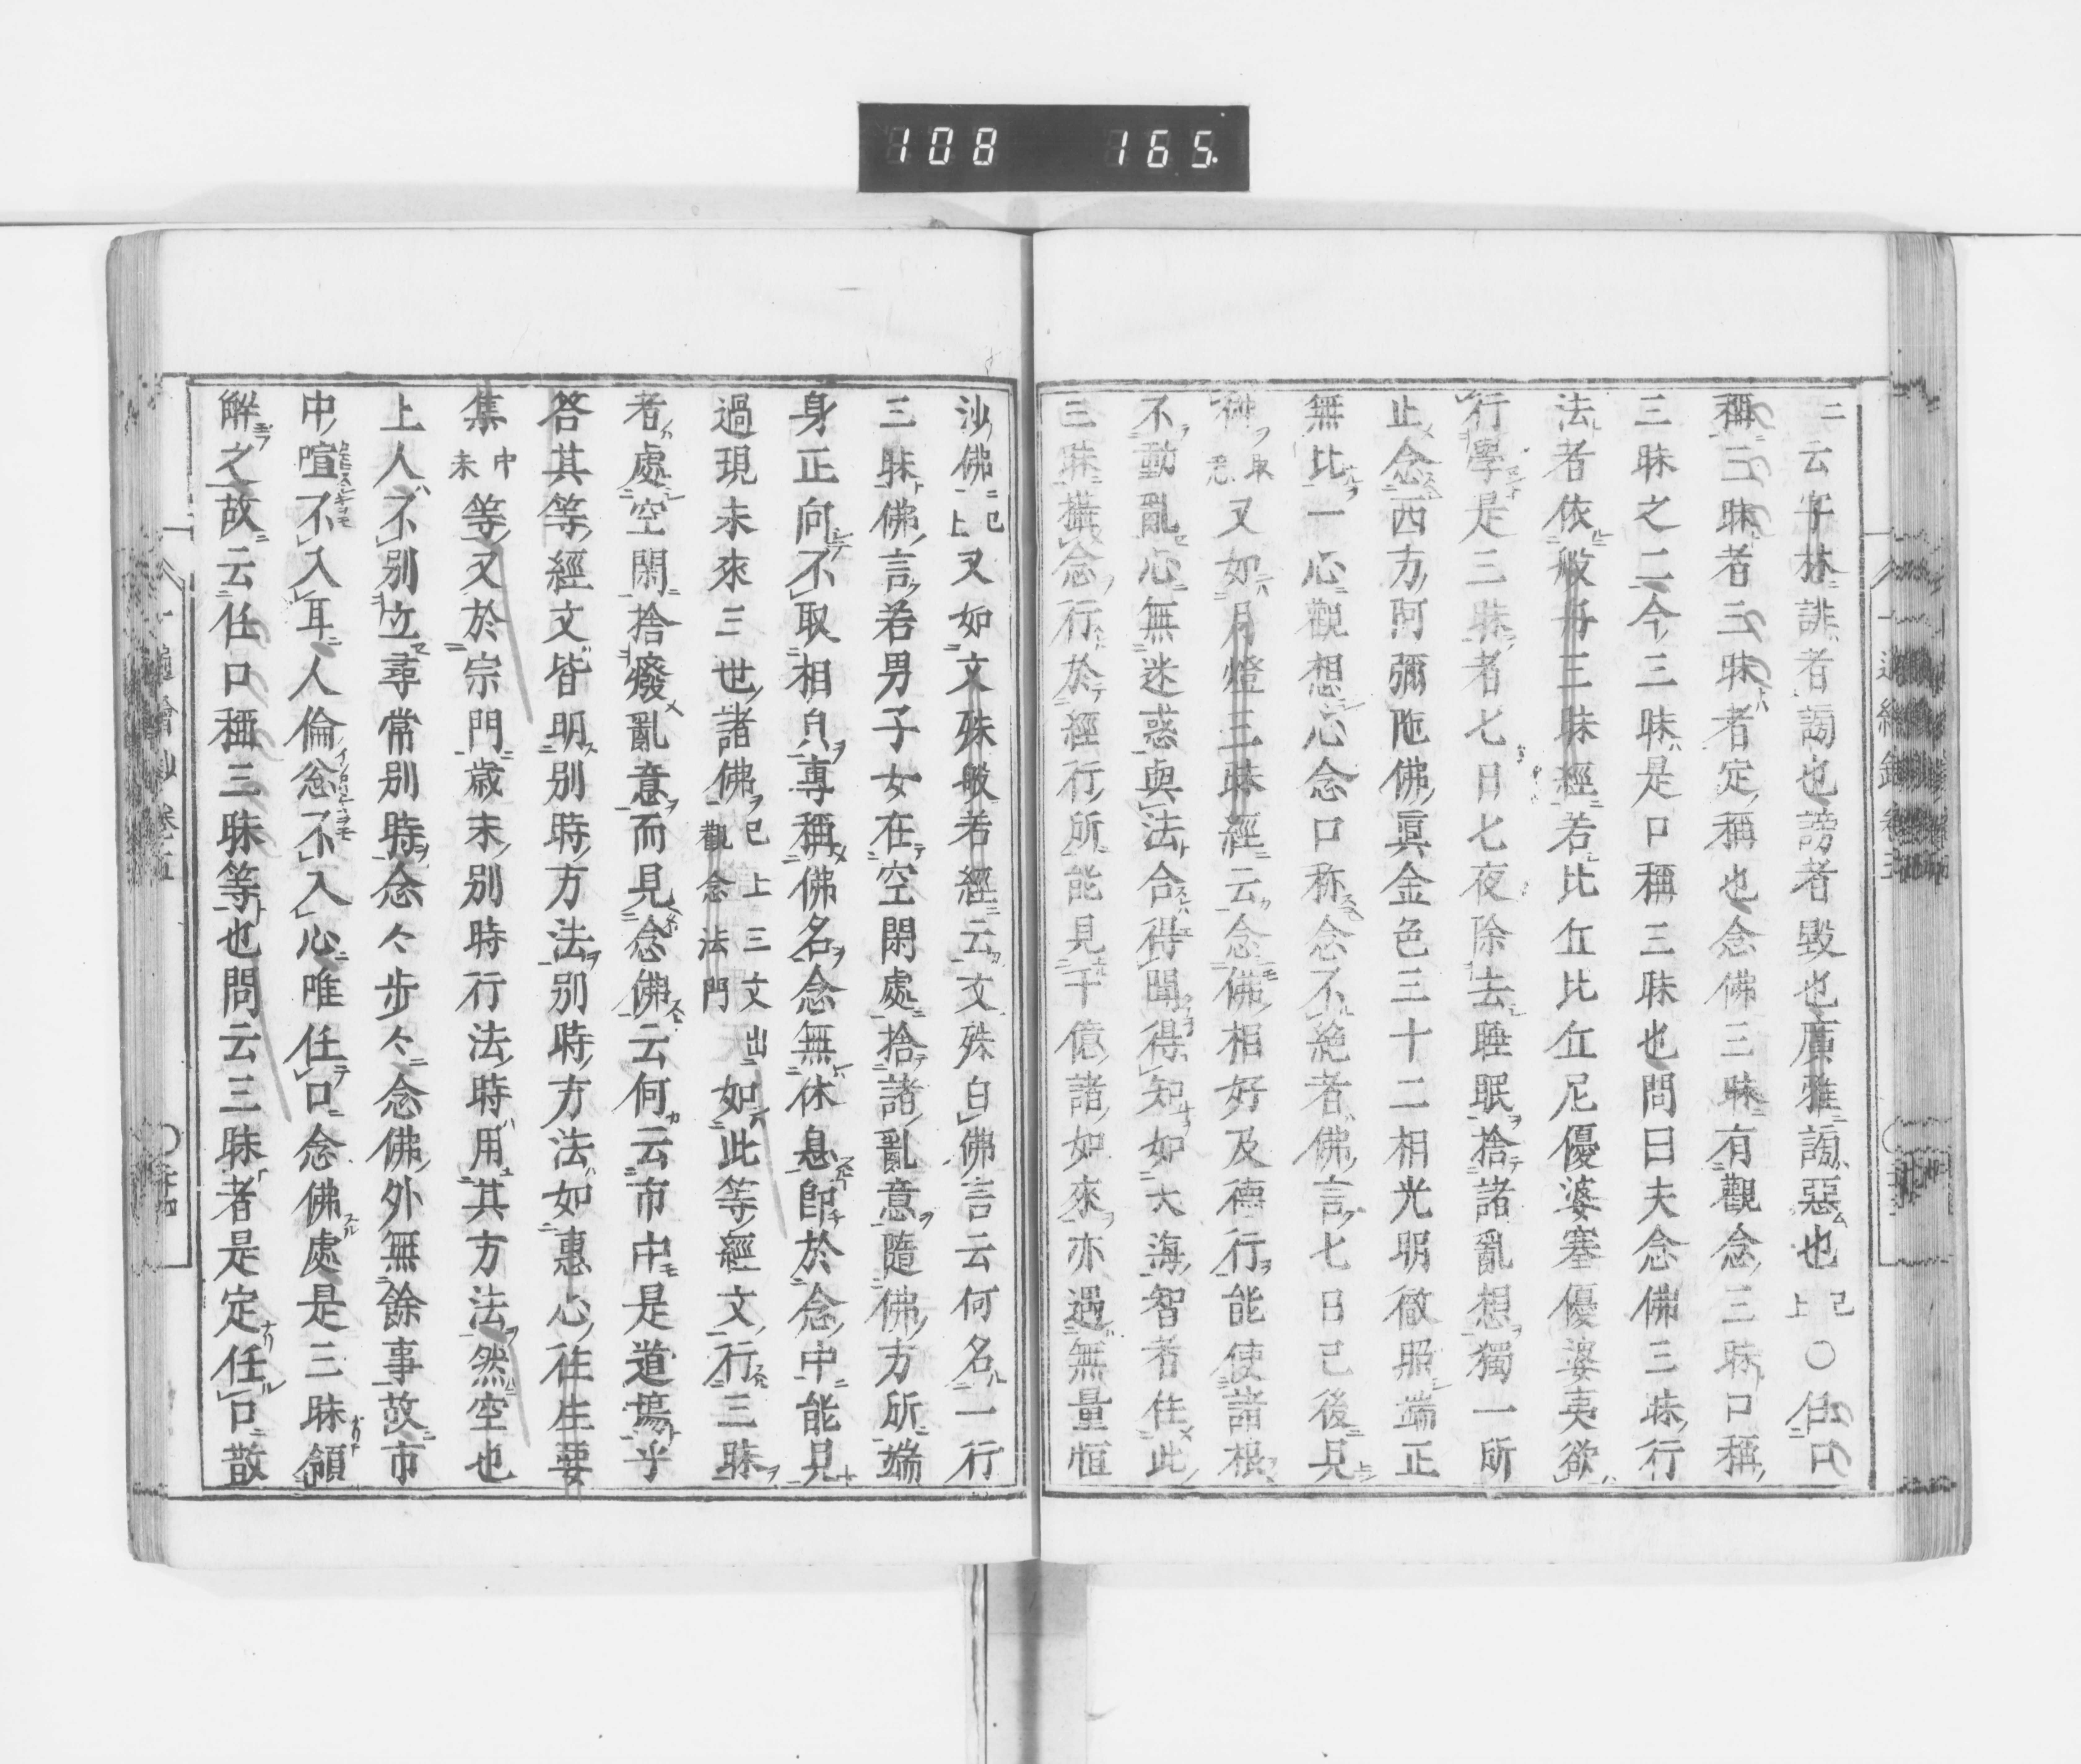 108 165
二云字林誹者謗也謗者毀也廣雅謗惡也已上〇任口
稱三昧者三昧者定稱也念佛三昧有觀念三昧口稱
三昧之二今三昧是口稱三昧也問曰夫念佛三昧行
法者依般舟三昧經若比丘比丘尼優婆塞優婆夷欲
行學是三昧者七日七夜除去睡眠捨諸亂想獨一所
止念西方阿彌陀佛眞金色三十二相光明徹照端正
無比一心觀想心念口称念不絶者佛言七日已後見
又如月燈三昧經云念佛相好及德行能使諸根
不動亂心無迷惑與法合得聞得知如大海智者住此
三昧攝念行於經行所能見千億諸如來亦遇無量恒
沙佛已上又如文殊般若經云文殊白佛言云何名一行
三昧佛言若男子女在空閑處捨諸亂意隨佛方所端
身正向不取相貌專稱佛名念無休息即於念中能見
過現未來三世諸佛已上三文出觀念法門如此等經文行三昧
者處空閑捨癈亂意而見念佛云何云市中是道塲乎
答其等經文皆明別時方法別時方法如惠心徃生要
集中末等又於宗門歳末別時行法時用其方法然空也
上人不別立尋常別時念々步々念佛外無餘事故市
中喧不入耳人倫忩不入心唯任口念佛處是三昧領
解之故云任口稱三昧等也問云三昧者是定任口散